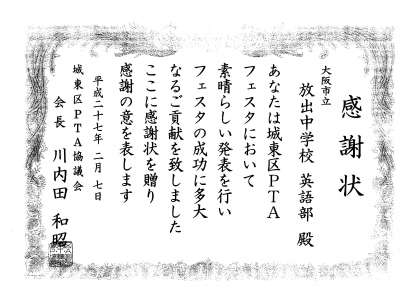 感謝状
大阪市立
放出中学校 英語部 殿
あなたは城東区PTA
フェスタにおいて
素晴らしい発表を行い
フェスタの成功に多大
なるご貢献を致しました
ここに感謝状を贈り
感謝の意を表します
平成二十七年二月七日
城東区PTA協議会
会長 川内田 和昭